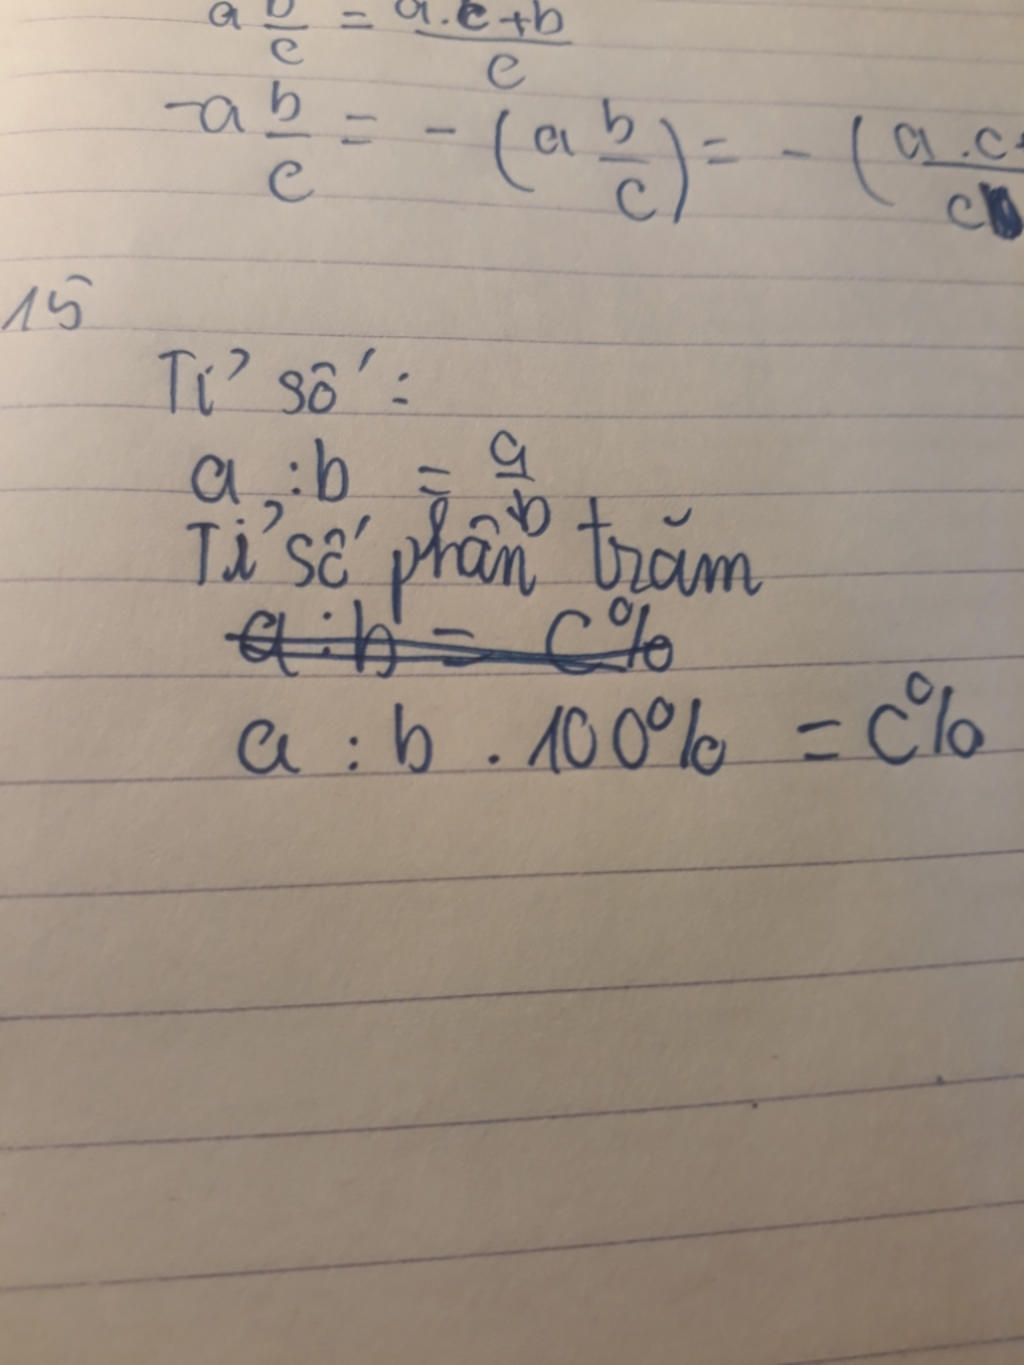 a b/c = a.c+b/c
-a b/c = - (a b/c) = - (a.c+/c
15
Tỉ số:
a :b = a/b
Tỉ số phần trăm
a : b = c%
a : b . 100% = c%